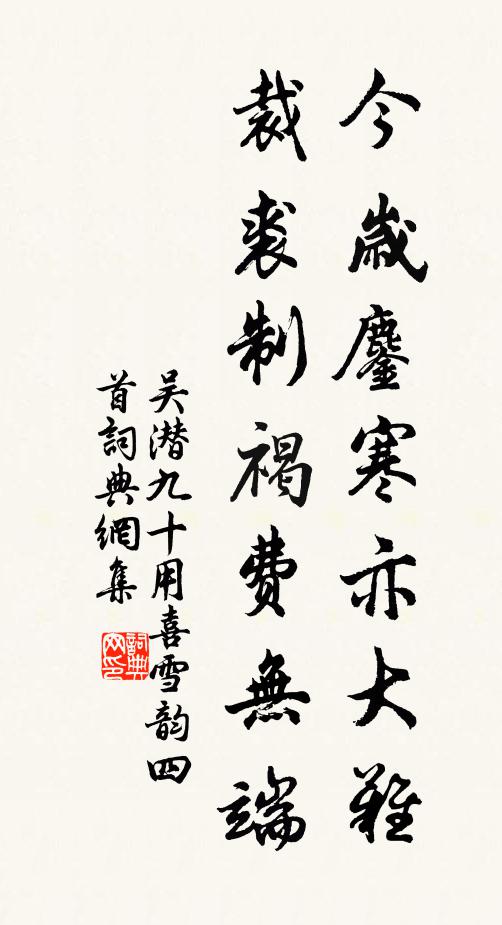 今歲鏖寒亦大難
裁裘制褐費無端
吴潜九十用喜雪韵四
首詞典網集
詞典網印